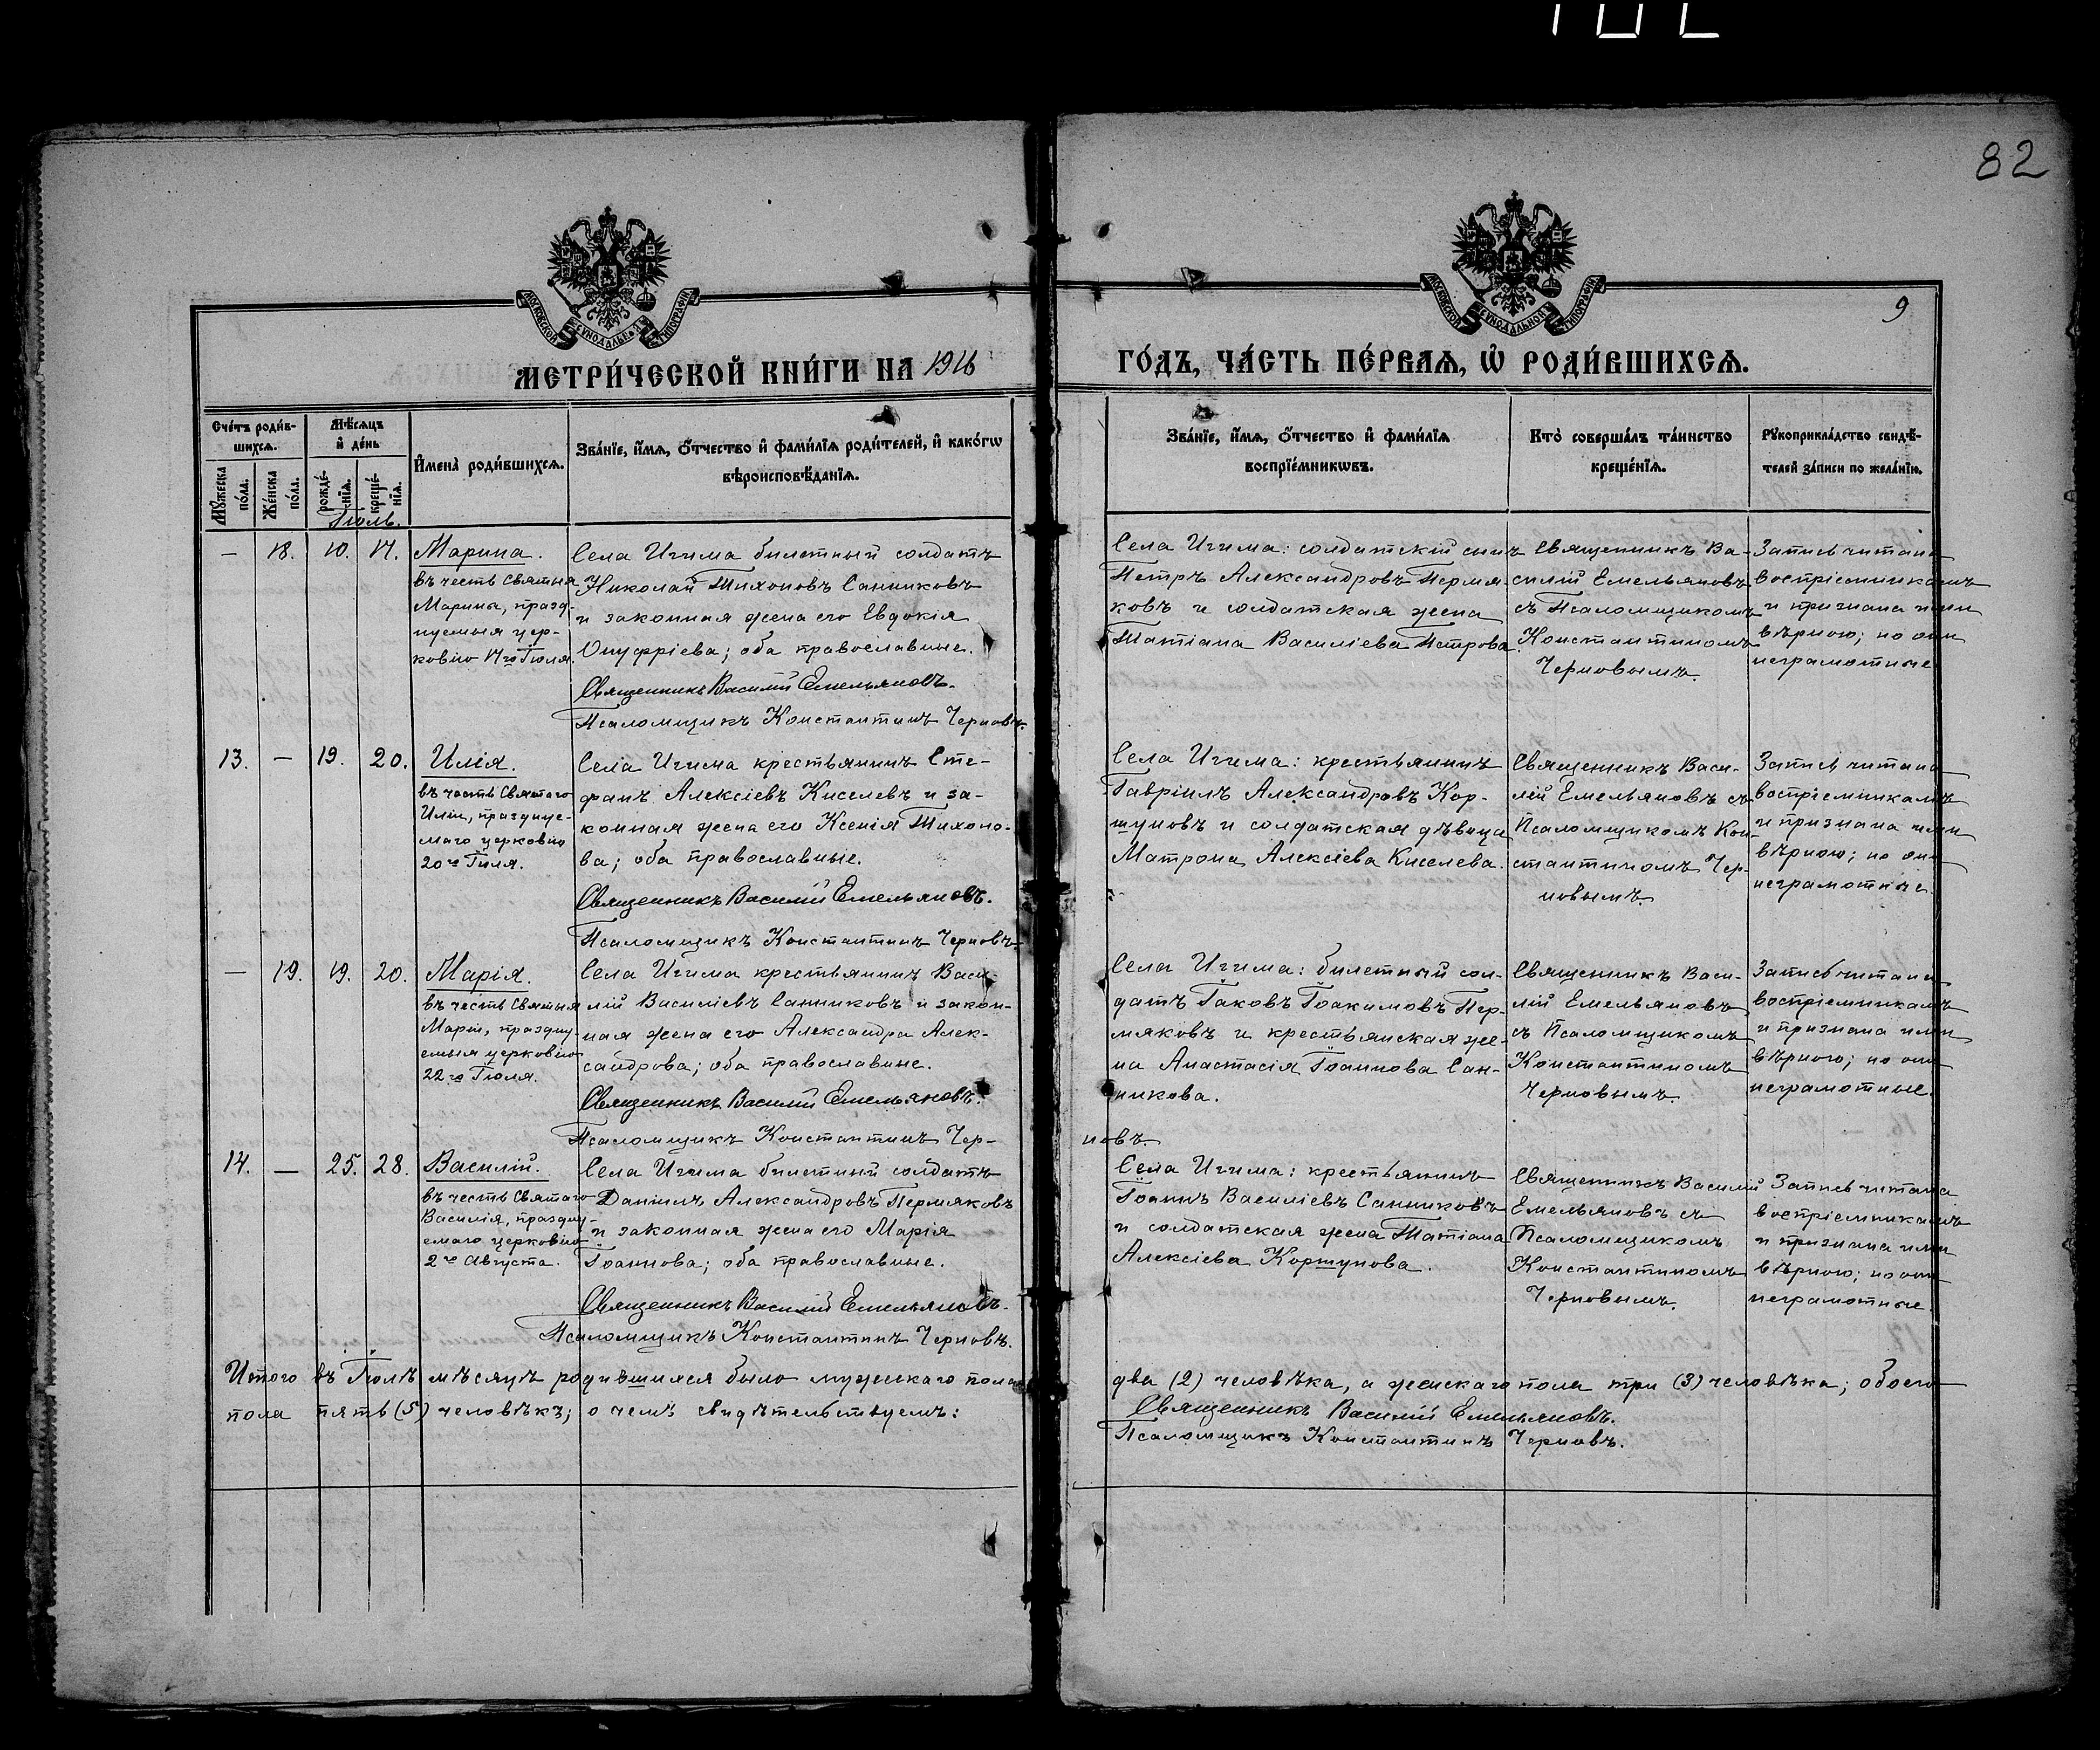 82
9
МОСКОВСКОЙ СѴНОДАЛЬНОЙ ТИПОГРАФІИ
МОСКОВСКОЙ СѴНОДАЛЬНОЙ ТИПОГРАФІИ
МЕТРИ́ЧЕСКОЙ КНИ́ГИ НА 1916
ГО́ДЪ, ЧА́СТЬ ПЕ́РВАѦ, Ѡ҆ РОДИ́ВШИХСѦ.
Сче́тъ роди́в-
шихсѧ.
Мѣ́сѧцъ
и҆ де́нь
Мꙋ́жеска по́ла.
Же́нска по́ла.
рожде́-
нїѧ.
креще́-
нїѧ.
И҆мена̀ роди́вшихсѧ.
Зва́нїе, и҆́мѧ, ѻ҆́тчество и҆ фами́лїѧ роди́телей, и҆ како́гѡ
вѣроисповѣ́данїѧ.
Зва́нїе, и҆́мѧ, ѻ҆́тчество и҆ фами́лїѧ
воспрїе́мникѡвъ.
Кто̀ соверша́лъ та́инство
креще́нїѧ.
Рꙋкоприкла́дство свидѣ́-
телей за́писи по жела́нїю.
Іюль.
— 18. 10. 17.
Марина.
въ честь Святыя
Марины, празд-
нуемыя цер-
ковію 17го Іюля.
Села Игима билетный солдатъ
Николай Тихоновъ Санниковъ
и законная жена его Евдокія
Онуфріева; оба православные.
Священникъ Василій Емельяновъ.
Псаломщикъ Константинъ Черновъ.
Села Игима: солдатскій сынъ
Петръ Александровъ Пермя-
ковъ и солдатская жена
Татіана Василіева Петрова.
Священникъ Ва-
силій Емельяновъ
съ Псаломщикомъ
Константиномъ
Черновымъ.
Запись читана
воспріемникамъ
и признана ими
вѣрною; но они
неграмотные.
13. — 19. 20.
Илія.
въ честь Святаго
Иліи, празднуе-
маго церковію
20го Іюля.
Села Игима крестьянинъ Сте-
фанъ Алексіевъ Киселевъ и за-
конная жена его Ксенія Тихоно-
ва; оба православные.
Священникъ Василій Емельяновъ.
Псаломщикъ Константинъ Черновъ.
Села Игима: крестьянинъ
Гавріилъ Александровъ Кор-
шуновъ и солдатская дѣвица
Матрона Алексіева Киселева.
Священникъ Васи-
лій Емельяновъ съ
Псаломщикомъ Кон-
стантиномъ Чер-
новымъ.
Запись читана
воспріемникамъ
и признана ими
вѣрною; но они
неграмотные.
— 19. 19. 20.
Марія.
въ честь Святыя
Маріи, праздну-
емыя церковію
22го Іюля.
Села Игима крестьянинъ Васи-
лій Василіевъ Санниковъ и закон-
ная жена его Александра Алек-
сандрова; оба православные.
Священникъ Василій Емельяновъ.
Псаломщикъ Константинъ Чер-
новъ.
Села Игима: билетный сол-
датъ Іаковъ Іоакимовъ Пер-
мяковъ и крестьянская же-
на Анастасія Іоаннова Сан-
никова.
Священникъ Васи-
лій Емельяновъ
съ Псаломщикомъ
Константиномъ
Черновымъ.
Запись читана
воспріемникамъ
и признана ими
вѣрною; но они
неграмотные.
14. — 25. 28.
Василій.
въ честь Святаго
Василія, праздну-
емаго церковію
2го Августа.
Села Игима билетный солдатъ
Даніилъ Александровъ Пермяковъ
и законная жена его Марія
Іоаннова; оба православные.
Священникъ Василій Емельяновъ.
Псаломщикъ Константинъ Черновъ.
Села Игима: крестьянинъ
Іоаннъ Василіевъ Санниковъ
и солдатская жена Татіана
Алексіева Коршунова.
Священникъ Василій
Емельяновъ съ
Псаломщикомъ
Константиномъ
Черновымъ.
Запись читана
воспріемникамъ
и признана ими
вѣрною; но они
неграмотные.
Итого въ Іюлѣ мѣсяцѣ родившихся было мужскаго пола два (2) человѣка, а женскаго пола три (3) человѣка; обоего
пола пять (5) человѣкъ; о чемъ свидѣтельствуемъ:
Священникъ Василій Емельяновъ.
Псаломщикъ Константинъ Черновъ.